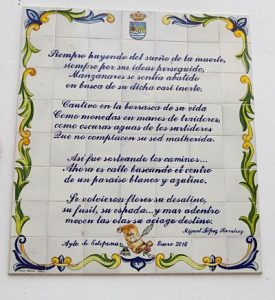 Siempre huyendo del sueño de la muerte,
siempre por sus ideas perseguido,
Manzanares se sentía abatido
en busca de su dicha casi inerte.
Cautivo en la borrasca de su vida
Como monedas en manos de traidores,
como oscuras aguas de los surtidores
Que no complacen su sed malherida.
Así fue sorteando los caminos...
Ahora es calle buscando el centro
de un paraíso blanco y azulino.
Se volvieron flores su desatino,
su fusil, su espada... y mar adentro
mecen las olas su aciago destino.
Miguel López Ramírez
Ayto. de Estepona Enero 2016